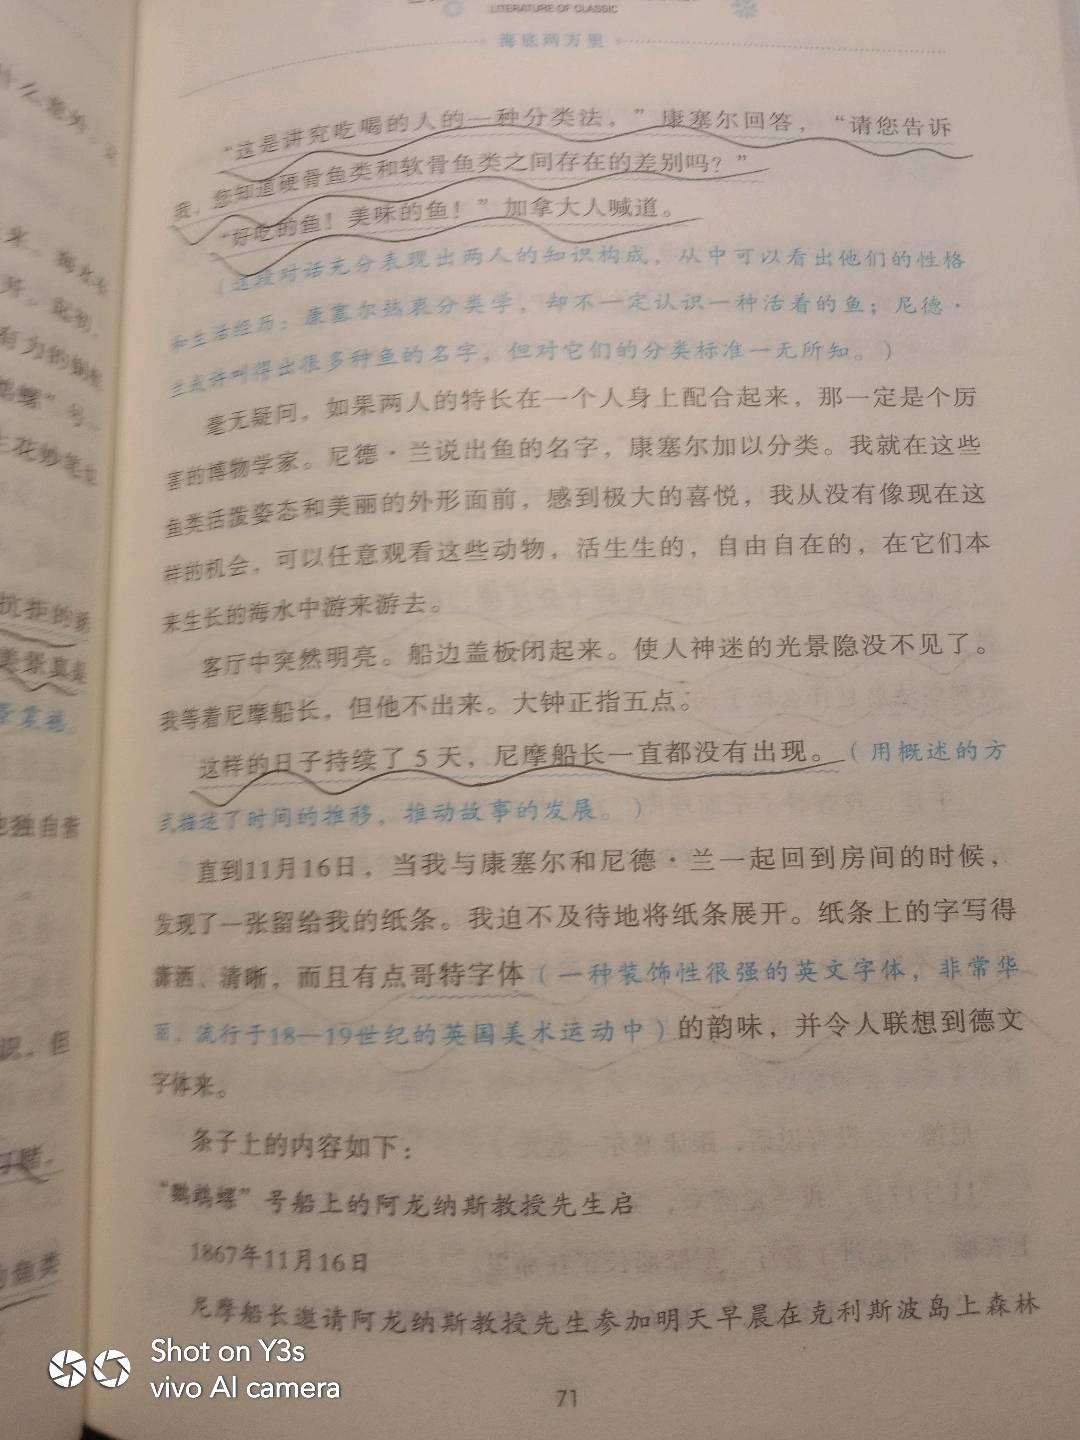 LITERATURE OF CLASSIC
海底两万里
“这是讲究吃喝的人的一种分类法，”康塞尔回答，“请您告诉
我，您知道硬骨鱼类和软骨鱼类之间存在的差别吗？”
“好吃的鱼！美味的鱼！”加拿大人喊道。
（这段对话充分表现出两人的知识构成，从中可以看出他们的性格
和生活经历：康塞尔热衷分类学，却不一定认识一种活着的鱼；尼德·
兰或许叫得出很多种鱼的名字，但对它们的分类标准一无所知。）
毫无疑问，如果两人的特长在一个人身上配合起来，那一定是个厉
害的博物学家。尼德·兰说出鱼的名字，康塞尔加以分类。我就在这些
鱼类活泼姿态和美丽的外形面前，感到极大的喜悦，我从没有像现在这
样的机会，可以任意观看这些动物，活生生的，自由自在的，在它们本
来生长的海水中游来游去。
客厅中突然明亮。船边盖板闭起来。使人神迷的光景隐没不见了。
我等着尼摩船长，但他不出来。大钟正指五点。
这样的日子持续了5天，尼摩船长一直都没有出现。（用概述的方
式描述了时间的推移，推动故事的发展。）
直到11月16日，当我与康塞尔和尼德·兰一起回到房间的时候，
发现了一张留给我的纸条。我迫不及待地将纸条展开。纸条上的字写得
潇洒、清晰，而且有点哥特字体（一种装饰性很强的英文字体，非常华
丽，流行于18—19世纪的英国美术运动中）的韵味，并令人联想到德文
字体来。
条子上的内容如下：
“鹦鹉螺”号船上的阿龙纳斯教授先生启
1867年11月16日
尼摩船长邀请阿龙纳斯教授先生参加明天早晨在克利斯波岛上森林
71
Shot on Y3s
vivo AI camera